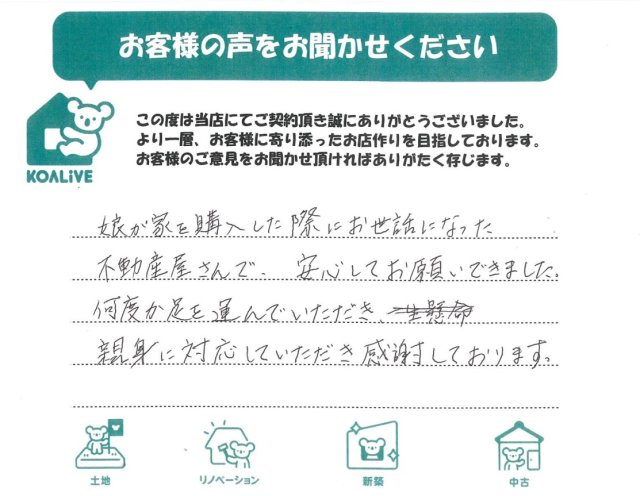 お客様の声をお聞かせください
この度は当店にてご契約頂き誠にありがとうございました。
より一層、お客様に寄り添ったお店作りを目指しております。
お客様のご意見をお聞かせ頂ければありがたく存じます。
KOALiVE
娘が家を購入した際にお世話になった
不動産屋さんで、安心してお願いできました。
何度か足を運んでいただき、一生懸命
親身に対応していただき感謝しております。
土地
リノベーション
新築
中古